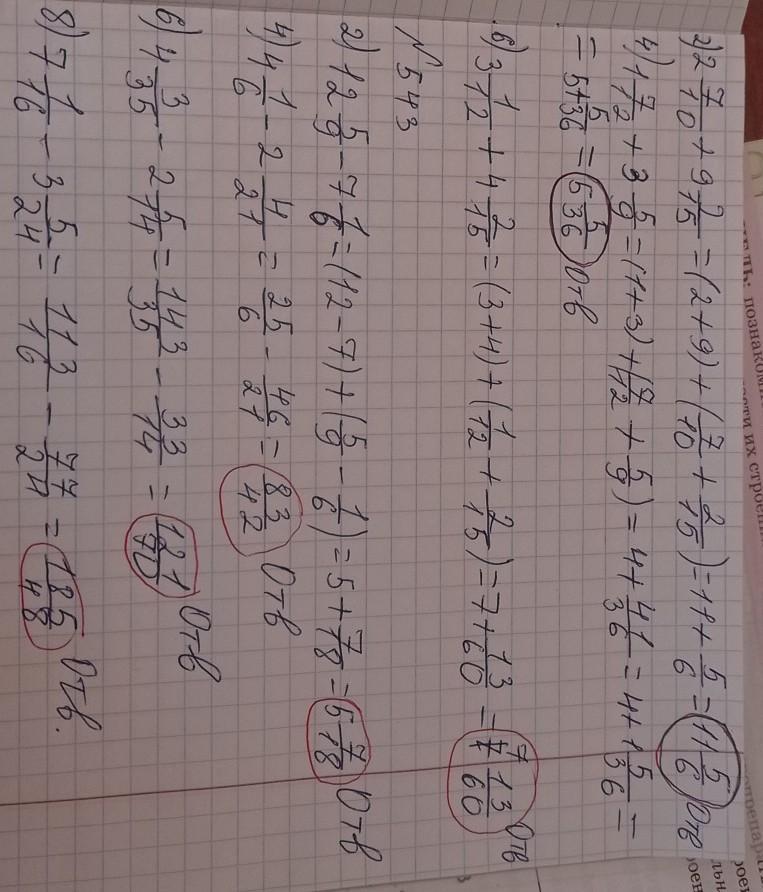 2) 2 7/10 + 9 2/15 = (2+9) + (7/10 + 2/15) = 11 + 5/6 = 11 5/6 Отв
4) 1 7/12 + 3 5/9 = (1+3) + (7/12 + 5/9) = 4 + 41/36 = 4 + 1 5/36 =
= 5 + 5/36 = 5 5/36 Отв
6) 3 1/12 + 4 2/15 = (3+4) + (1/12 + 2/15) = 7 + 13/60 = 7 13/60 Отв
№543
2) 12 5/9 - 7 1/6 = (12-7) + (5/9 - 1/6) = 5 + 7/18 = 5 7/18 Отв
4) 4 1/6 - 2 4/21 = 25/6 - 46/21 = 83/42 Отв
6) 4 3/35 - 2 5/14 = 143/35 - 33/14 = 121/70 Отв
8) 7 1/16 - 3 5/24 = 113/16 - 77/24 = 185/48 Отв.
познаком
ости их строен